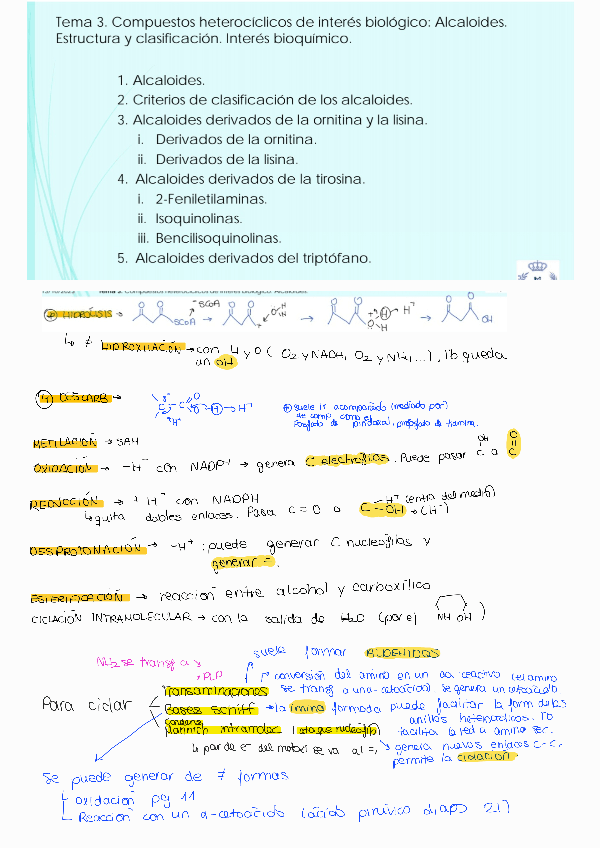 Tema 3. Compuestos heterocíclicos de interés biológico: Alcaloides.
Estructura y clasificación. Interés bioquímico.
1. Alcaloides.
2. Criterios de clasificación de los alcaloides.
3. Alcaloides derivados de la ornitina y la lisina.
i. Derivados de la ornitina.
ii. Derivados de la lisina.
4. Alcaloides derivados de la tirosina.
i. 2-Feniletilaminas.
ii. Isoquinolinas.
iii. Bencilisoquinolinas.
5. Alcaloides derivados del triptófano.
HIDRÓLISIS → SCoA → → → OH
↳ ≠ HIDROXILACIÓN → con H y O ( O2 y NADH, O2 y NH4 ...), ib queda
un OH
4) DESCARB → H → H⁺ suele ir acompañado (mediado por)
fosfato de piridoxal, pirofosfato de tiamina.
METILACIÓN → SAH
OXIDACIÓN → -H⁻ con NADP⁺ → genera C electrófilos. Puede pasar C a C
OH O
REDUCCIÓN → + H⁻ con NADPH
↳ quita dobles enlaces. Pasa C=O a C-OH → H⁺ (entra del medio)
→ (H⁻)
DESPROTONACIÓN → -H⁺ : puede generar C nucleófilos y
generar =.
ESTERIFICACIÓN → reacción entre alcohol y carboxílico
CICIACIÓN INTRAMOLECULAR → con la salida de H2O (por ej NH OH )
suele formar ALDEHIDOS
NH2 se transf a
PLP
conversión del amino en un aa reactivo (el amino
Para ciclar
Transaminaciones se transf a una α-cetoácido) se genera un cetoácido
Bases Schiff → la imina formada puede facilitar la form de los
anillos heterocíclicos. Tb
Condens.
Mannich intramolec (ataque nucleófilo) facilita la red a amina sec.
↳ par de e⁻ del motor se va al =, genera nuevos enlaces C-C.
permite la ciclación
Se puede generar de ≠ formas
Oxidación pg 11
Reacción con un α-cetoácido (ácido pirúvico diapo 21)